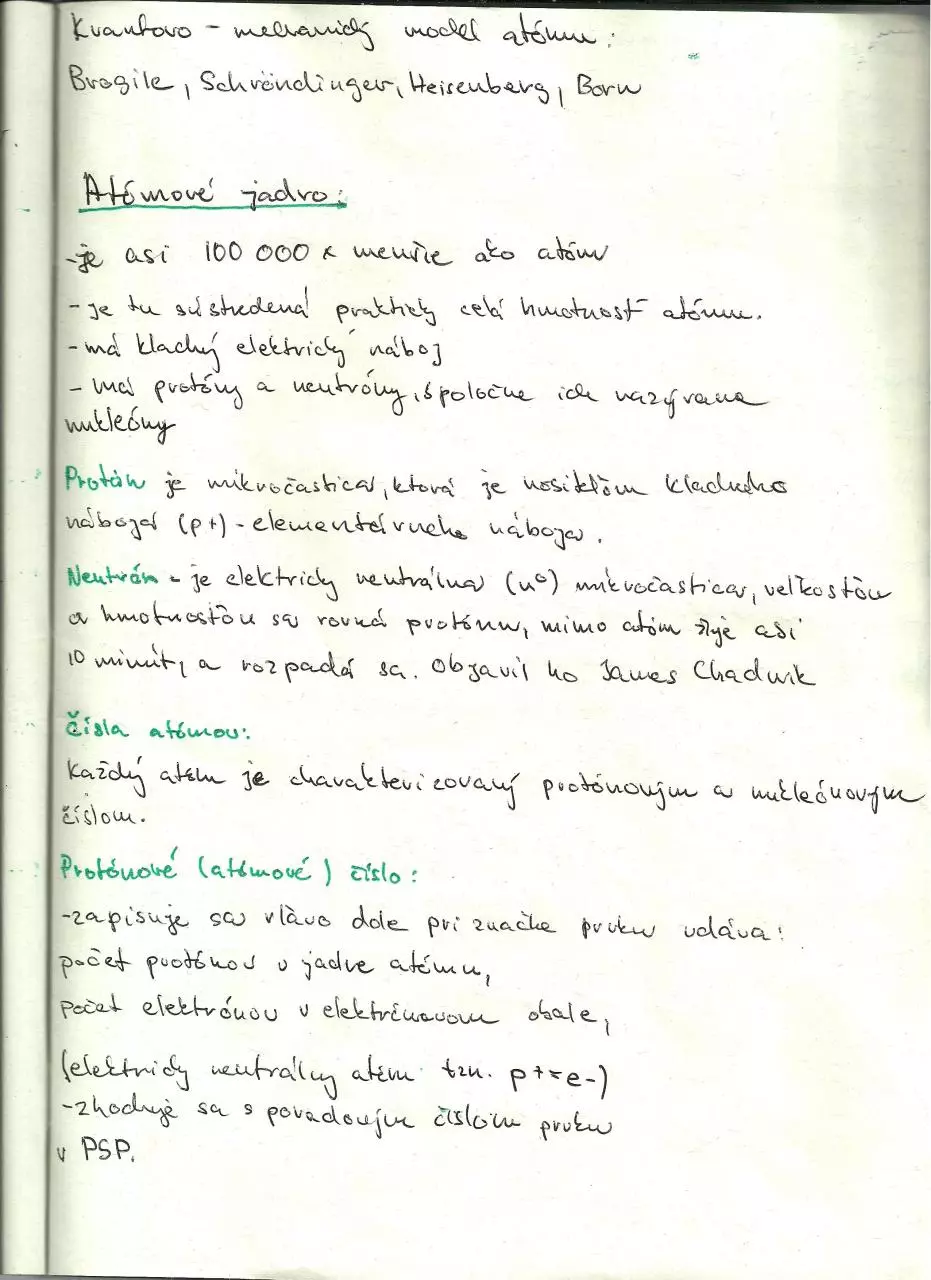 Kvantovo - mechanický model atómu:
Brogile, Schröndinger, Heisenberg, Born
Atómové jadro:
-je asi 100 000 x menšie ako atóm
- je tu sústredená prakticky celá hmotnosť atómu.
- má kladný elektrický náboj
- má protóny a neutróny, spoločne ich nazývame
nukleóny
Protón je mikročastica, ktorá je nosiťeľom kladného
náboja (p+) - elementárneho náboja.
Neutrón - je elektricky neutrálna (n°) mikročastica, veľkosťou
a hmotnosťou sa rovná protónu, mimo atóm žije asi
10 minút, a rozpadá sa. Objavil ho James Chadwik
Čísla atómov:
Každý atóm je charakterizovaný protónovým a nukleónovým
číslom.
Protónové (atómové) číslo:
-zapisuje sa vľavo dole pri značke prvku udáva:
počet protónov v jadre atómu,
počet elektrónov v elektrónovom obale,
(elektricky neutrálny atóm tzn. p+=e-)
-zhoduje sa s poradovým číslom prvku
v PSP.